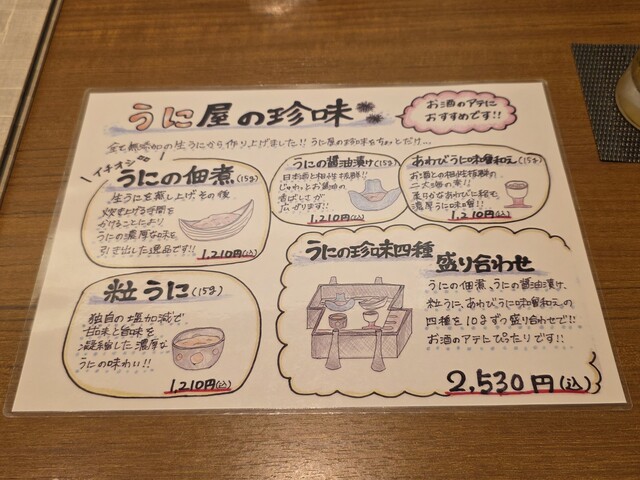 うに屋の珍味
お酒のアテに
おすすめです!!
全て無添加の生うにから作り上げました!! うに屋の珍味をちょっとだけ…
イチオシ
うにの佃煮(15g)
生うにを蒸し上げ、その後
炊き上げる時間を
かけることにより
うにの濃厚な味を
引き出した逸品です!!
1,210円(込)
うにの醤油漬け(15g)
日本酒と相性抜群!!
じゅわっとお醤油の
香ばしさが
広がります!!
1,210円(込)
あわびうに味噌和え(15g)
お酒との相性抜群の
二大海の幸!!
柔らかなあわびに絡む
濃厚うに味噌!!
1,210円(込)
粒うに(15g)
独自の塩加減で
甘味と旨味を
凝縮した濃厚な
うにの味わい!!
1,210円(込)
うにの珍味四種
盛り合わせ
うにの佃煮、うにの醤油漬け、
粒うに、あわびうに味噌和え、の
四種を10gずつ盛り合わせで!!
お酒のアテにぴったりです!!
2,530円(込)